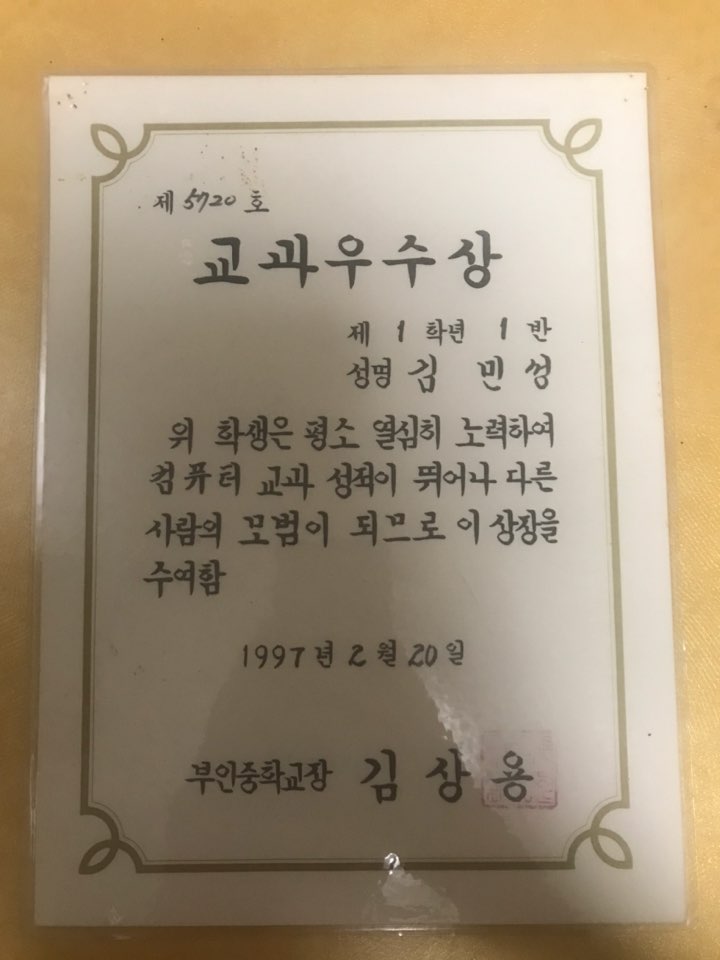 제 5720 호
교과우수상
제 1 학년 1 반
성명 김 민 성
위 학생은 평소 열심히 노력하여
컴퓨터 교과 성적이 뛰어나 다른
사람의 모범이 되므로 이 상장을
수여함
1997 년 2 월 20 일
부안중학교장 김 상 용